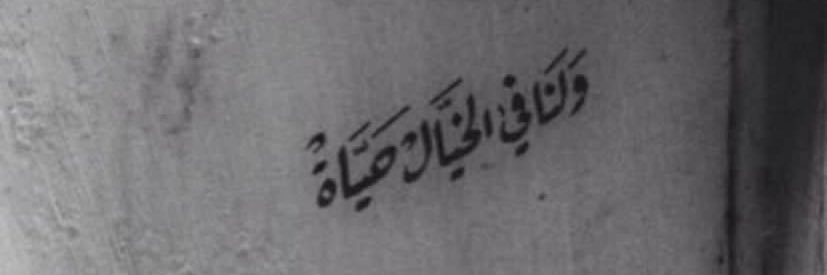 وَلَنَا في الخَيَّالْ حَيَّاةْ